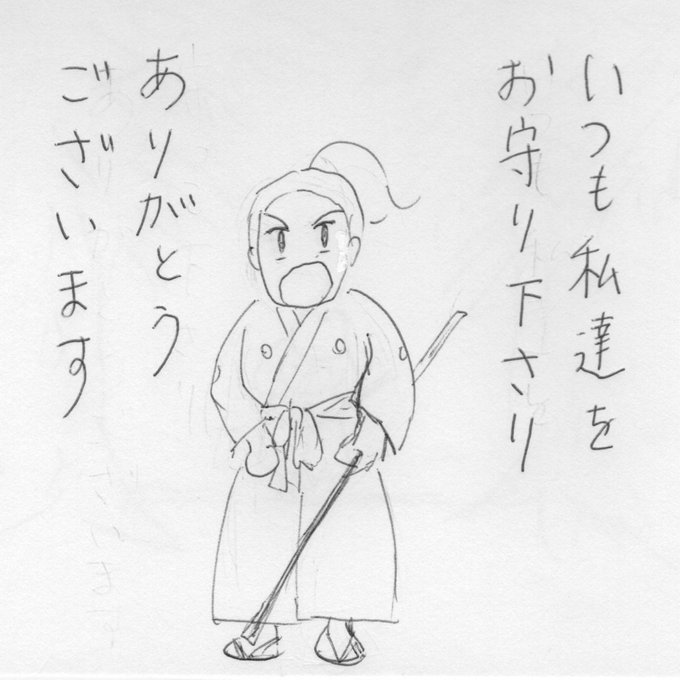 いつも私達を
お守り下さり
ありがとう
ございます